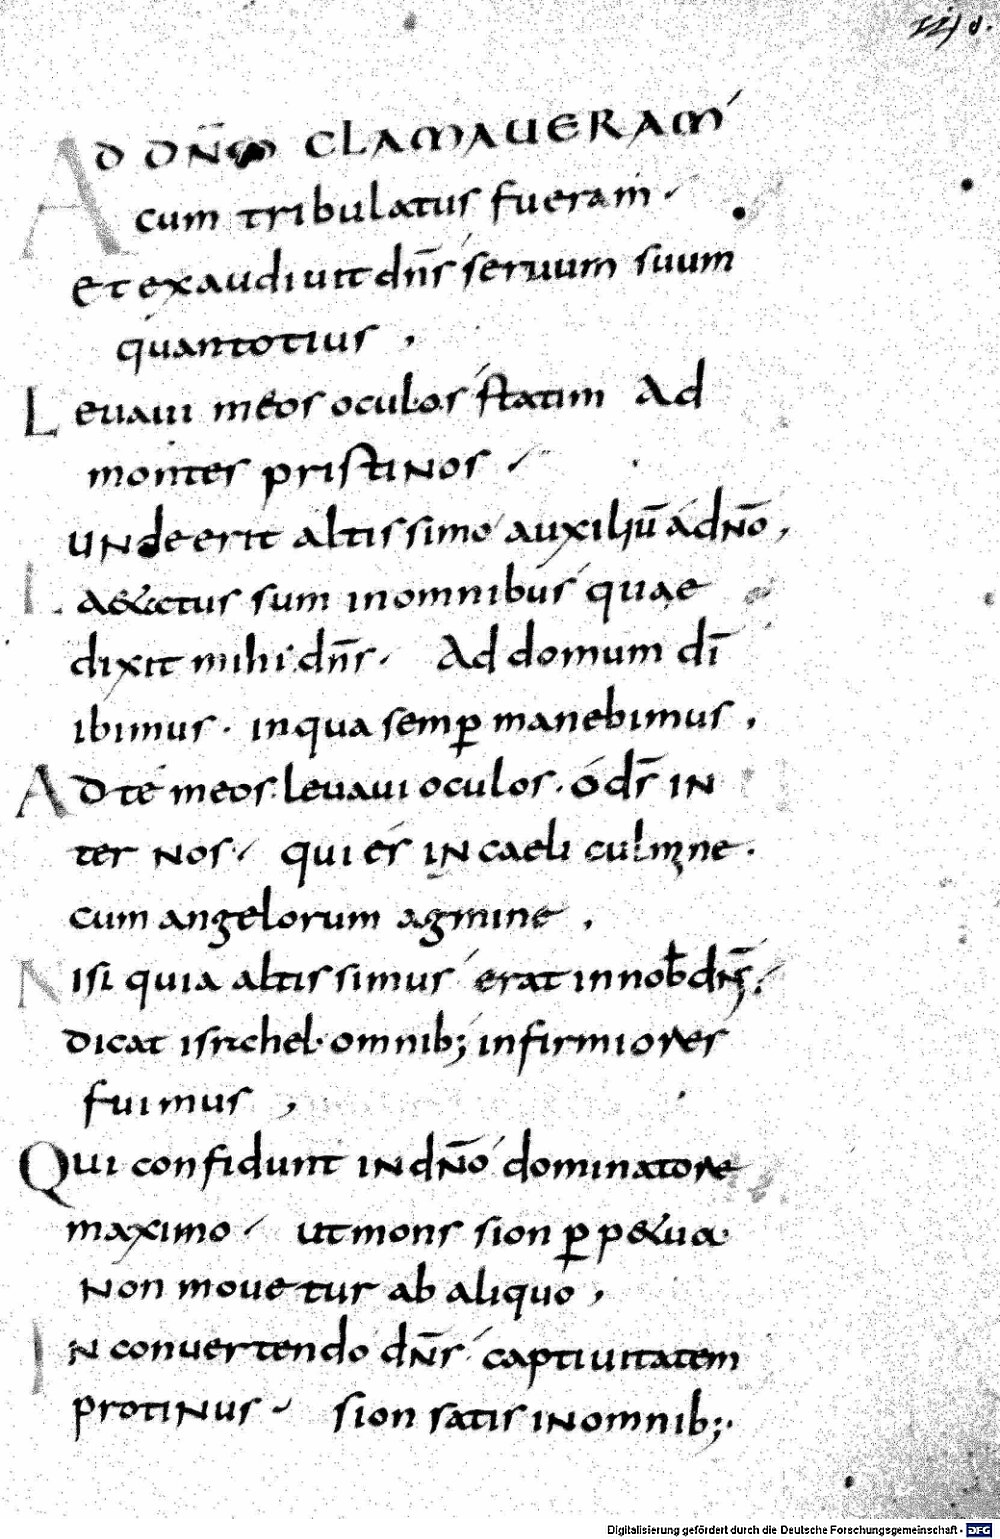 AD DN̄M CLAMAUERAM
cum tribulatus fueram.
Et exaudiuit dn̄s seruum suum
quantotius,
Leuaui meos oculos statim Ad
montes pristinos
Unde erit altissimo auxiliū ad dn̄o,
Laetatus sum in omnibus quae
dixit mihi dn̄s. Ad domum dī
ibimus. in qua semꝑ manebimus,
Ad te meos leuaui oculos. o ds̄ in
ter nos. qui es in caeli culmine.
cum angelorum agmine,
Nisi quia altissimus erat in nob̄ dn̄s.
dicat isrƚ omnib; infirmiores
fuimus,
Qui confidunt in dn̄o dominatore
maximo. ut mons sion ꝑpetua
Non mouetur ab aliquo,
In conuertendo dn̄s captiuitatem
protinus. sion satis in omnib;.
Digitalisierung gefördert durch die Deutsche Forschungsgemeinschaft - DFG